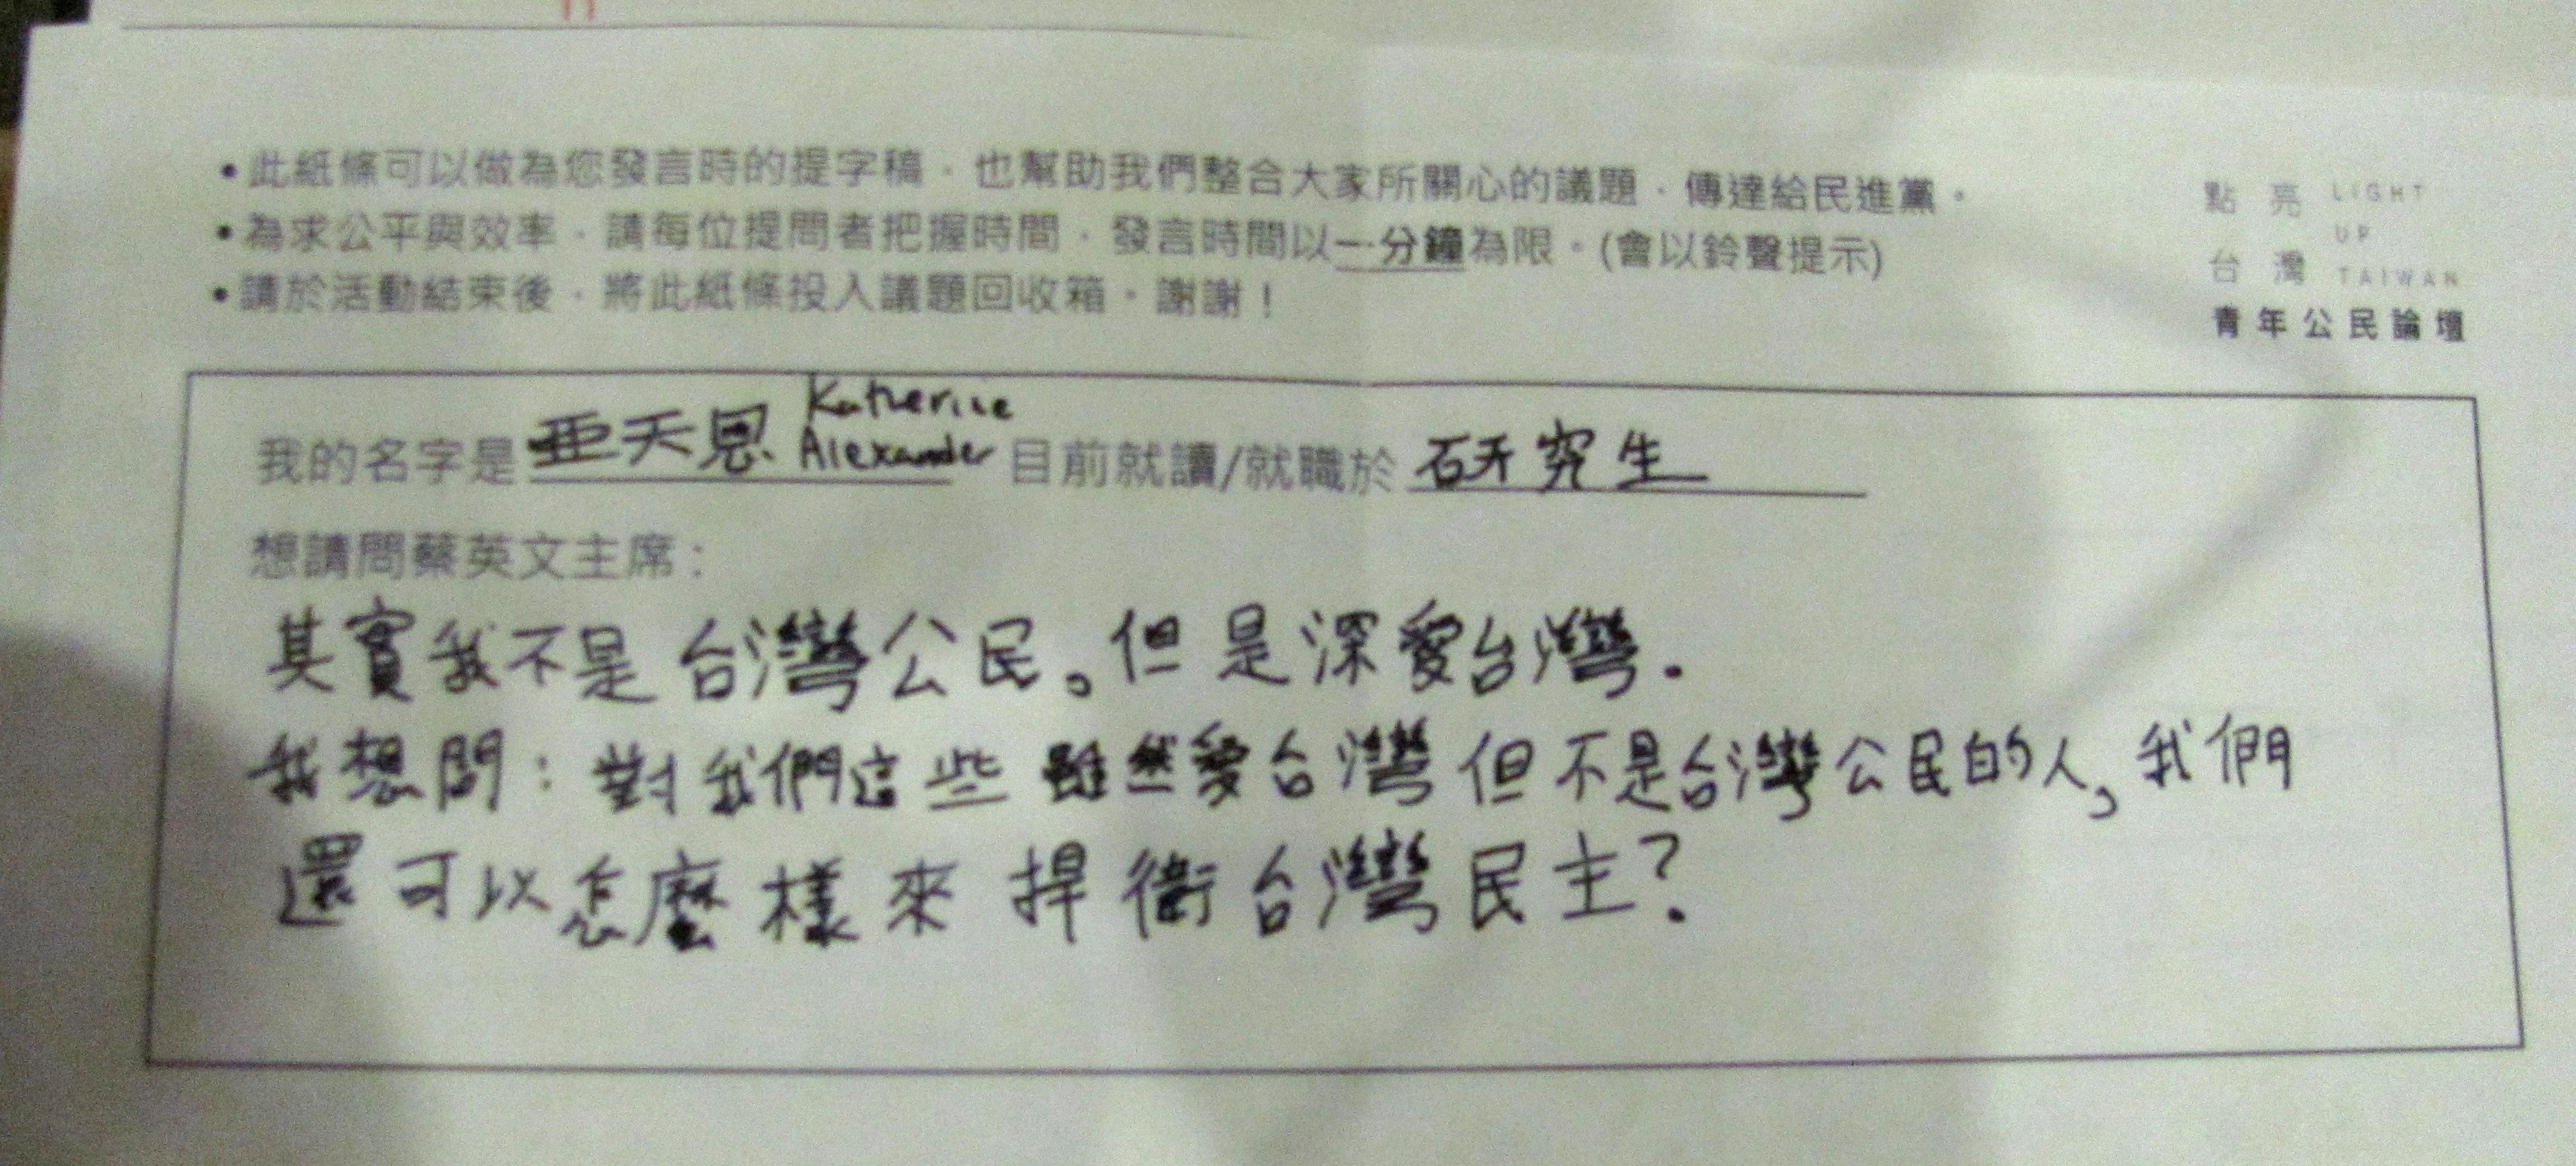 •此紙條可以做為您發言時的提字稿，也幫助我們整合大家所關心的議題，傳達給民進黨。
•為求公平與效率，請每位提問者把握時間，發言時間以一分鐘為限。(會以鈴聲提示)
•請於活動結束後，將此紙條投入議題回收箱。謝謝！
點亮 LIGHT
UP
台灣 TAIWAN
青年公民論壇
Katherine
我的名字是 亞天恩 Alexander 目前就讀/就職於 研究生
想請問蔡英文主席：
其實我不是台灣公民。但是深愛台灣.
我想問：對我們這些雖然愛台灣但不是台灣公民的人，我們
還可以怎麼樣來捍衛台灣民主？